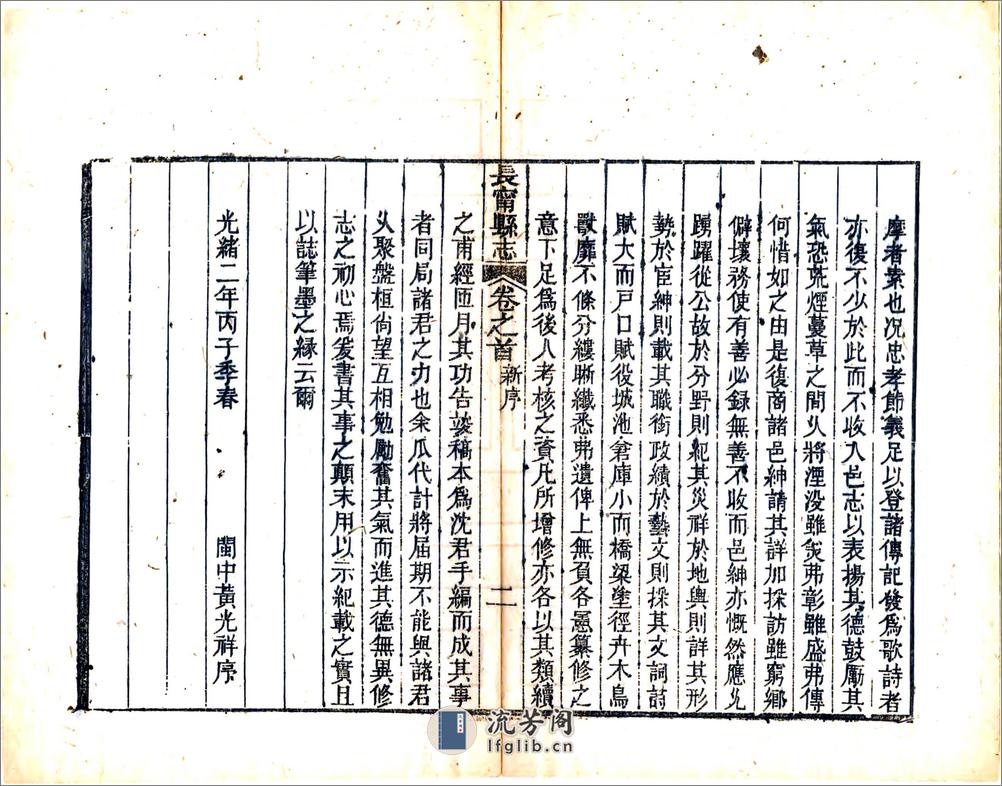 摩者素也况忠孝節義足以登諸傳記發爲歌詩者
亦復不少於此而不收入邑志以表揚其德鼓厲其
氣恐荒煙蔓草之間久將湮没雖美弗彰雖盛弗傳
何惜如之由是復商諸邑紳請其詳加採訪雖窮鄉
僻壤務使有善必録無善不收而邑紳亦慨然應允
踴躍從公故於分野則紀其災祥於地輿則詳其形
勢於宦紳則載其職銜政績於藝文則採其文詞詩
賦大而戸口賦役城池倉庫小而橋梁塗徑卉木鳥
獸靡不條分縷晰纖悉弗遺俾上無負各憲纂修之
意下足爲後人考核之資凡所增修亦各以其類續
長甯縣志 卷之首 新序 二
之甫經匝月其功告竣稿本爲沈君手編而成其事
者同局諸君之力也余瓜代計將屆期不能與諸君
久聚盤桓尚望互相勉勵奮其氣而進其德無異修
志之初心焉爰書其事之顛末用以示紀載之實且
以誌筆墨之緣云爾
光緒二年丙子季春 閩中黃光祥序
流芳阁
lfglib.cn